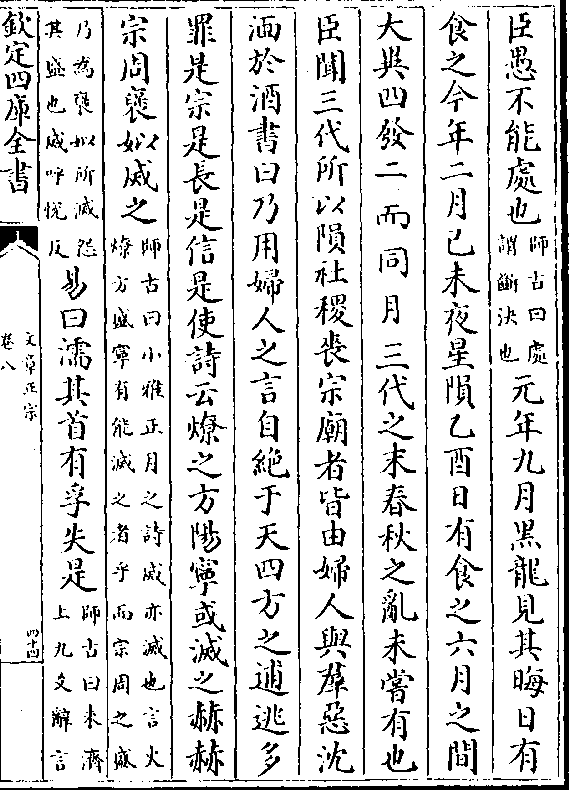 臣愚不能處也師古曰處謂斷決也元年九月黑龍見其晦日有
食之今年二月己未夜星隕乙酉日有食之六月之間
大異四發二而同月三代之末春秋之亂未嘗有也
臣聞三代所以隕社稷喪宗廟者皆由婦人與羣惡沈
湎於酒書曰乃用婦人之言自絶于天四方之逋逃多
罪是宗是長是信是使詩云燎之方陽寧或滅之赫赫
宗周襃姒烕之師古曰小雅正月之詩烕亦滅也言火燎方盛寧有能滅之者乎而宗周之盛
乃為襃姒所滅怨其盛也烕呼恱反易曰濡其首有孚失是師古曰未濟上九爻辭言
欽定四庫全書
文章正宗
卷八
四十四